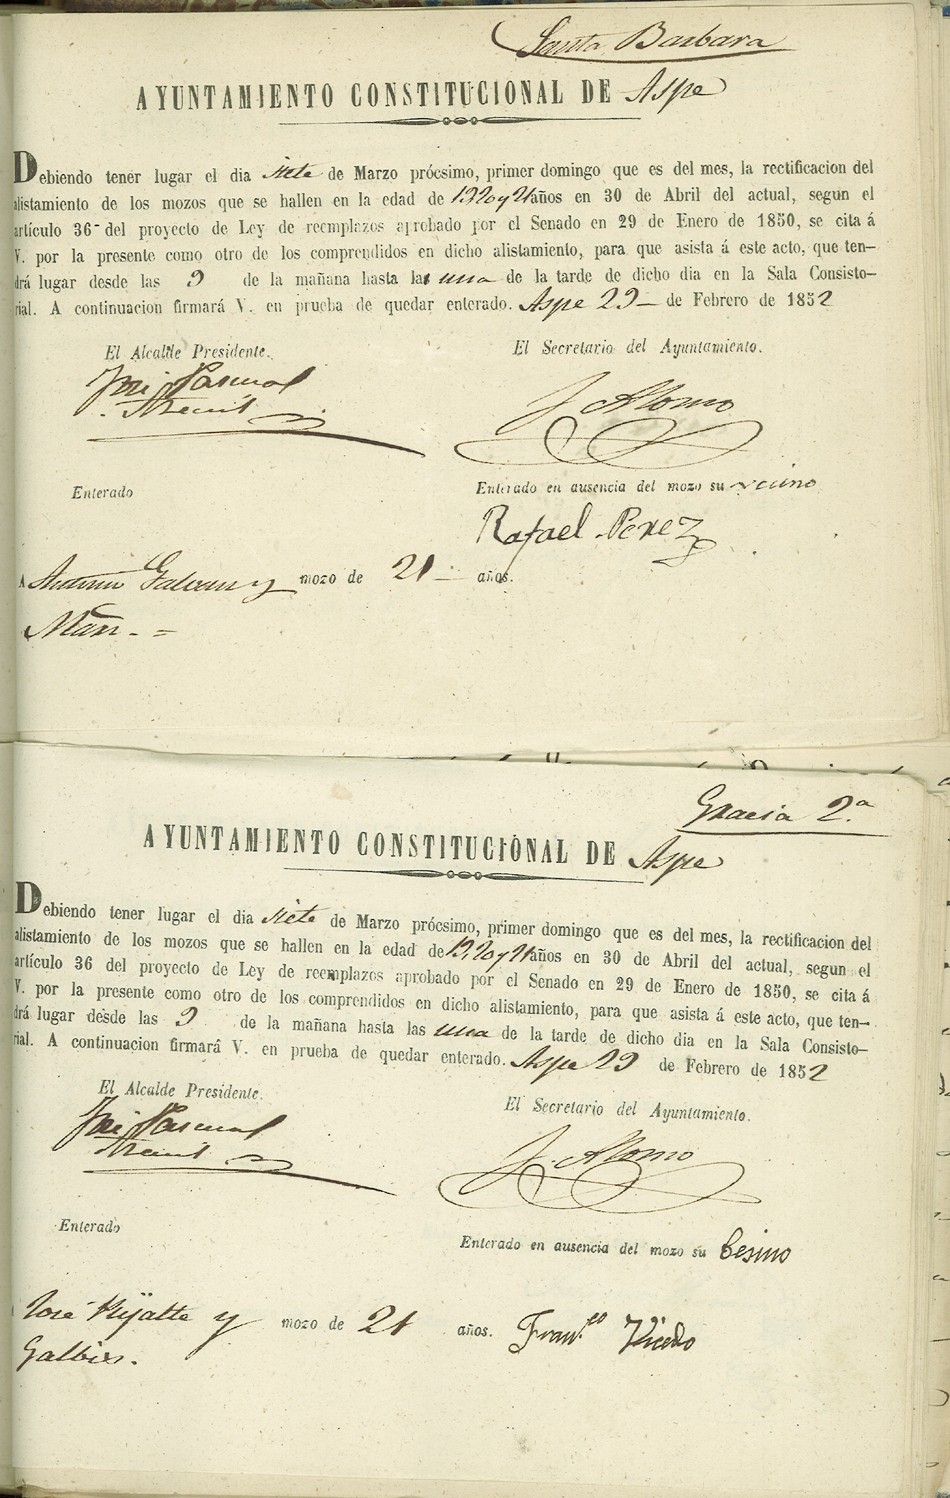 Santa Barbara
AYUNTAMIENTO CONSTITUCIONAL DE Aspe
Debiendo tener lugar el dia siete de Marzo prócsimo, primer domingo que es del mes, la rectificacion del
alistamiento de los mozos que se hallen en la edad de 19 20 y 21 años en 30 de Abril del actual, segun el
artículo 36 del proyecto de Ley de reemplazos aprobado por el Senado en 29 de Enero de 1850, se cita á
V. por la presente como otro de los comprendidos en dicho alistamiento, para que asista á este acto, que ten-
drá lugar desde las 9 de la mañana hasta las una de la tarde de dicho dia en la Sala Consisto-
rial. A continuacion firmará V. en prueba de quedar enterado. Aspe 29 de Febrero de 1852
El Alcalde Presidente.
El Secretario del Ayuntamiento.
José Pascual
J. Alonso
Enterado
Enterado en ausencia del mozo su vecino
Rafael Perez
A Antonio Galvan y mozo de 21 años.
Gracia 2.ª
AYUNTAMIENTO CONSTITUCIONAL DE Aspe
Debiendo tener lugar el dia siete de Marzo prócsimo, primer domingo que es del mes, la rectificacion del
alistamiento de los mozos que se hallen en la edad de 19, 20 y 21 años en 30 de Abril del actual, segun el
artículo 36 del proyecto de Ley de reemplazos aprobado por el Senado en 29 de Enero de 1850, se cita á
V. por la presente como otro de los comprendidos en dicho alistamiento, para que asista á este acto, que ten-
drá lugar desde las 9 de la mañana hasta las una de la tarde de dicho dia en la Sala Consisto-
rial. A continuacion firmará V. en prueba de quedar enterado. Aspe 29 de Febrero de 1852
El Alcalde Presidente.
El Secretario del Ayuntamiento.
José Pascual
J. Alonso
Enterado
Enterado en ausencia del mozo su besino
José y mozo de 21 años. Fran.co Vicedo
Galbis.